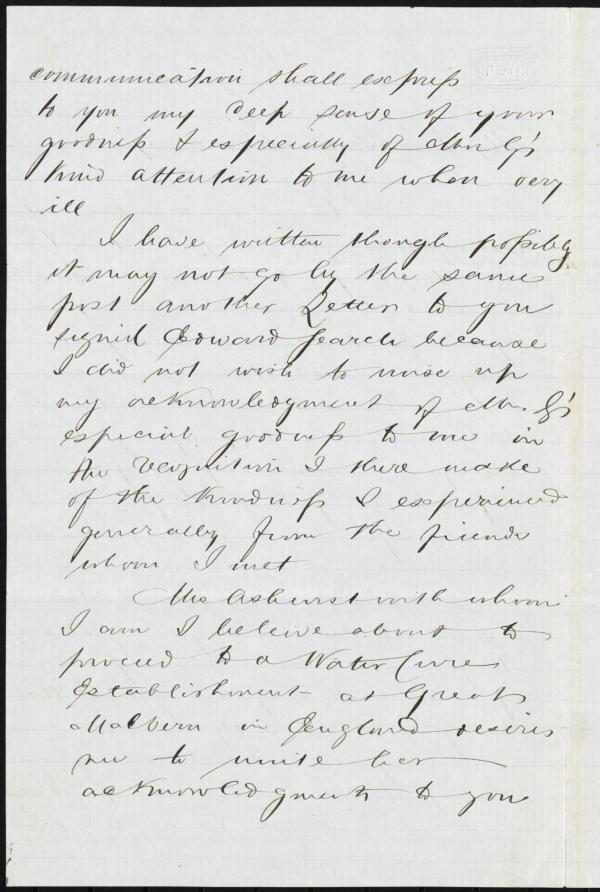 communication shall express
to you my deep sense of your
goodness & especially of Mr G's
kind attention to me when very
ill
I have written though possibly
it may not go by the same
post another Letter to you
signed Edward Search because
I did not wish to mix up
my acknowledgment of Mr. G's
especial goodness to me in
the recognition I there make
of the kindness I experienced
generally from the friends
whom I met
Mrs Ashurst with whom
I am I beleive about to
proceed to a Water Cure
Establishment at Great
Malvern in England desires
me to unite her
acknowledgments to you